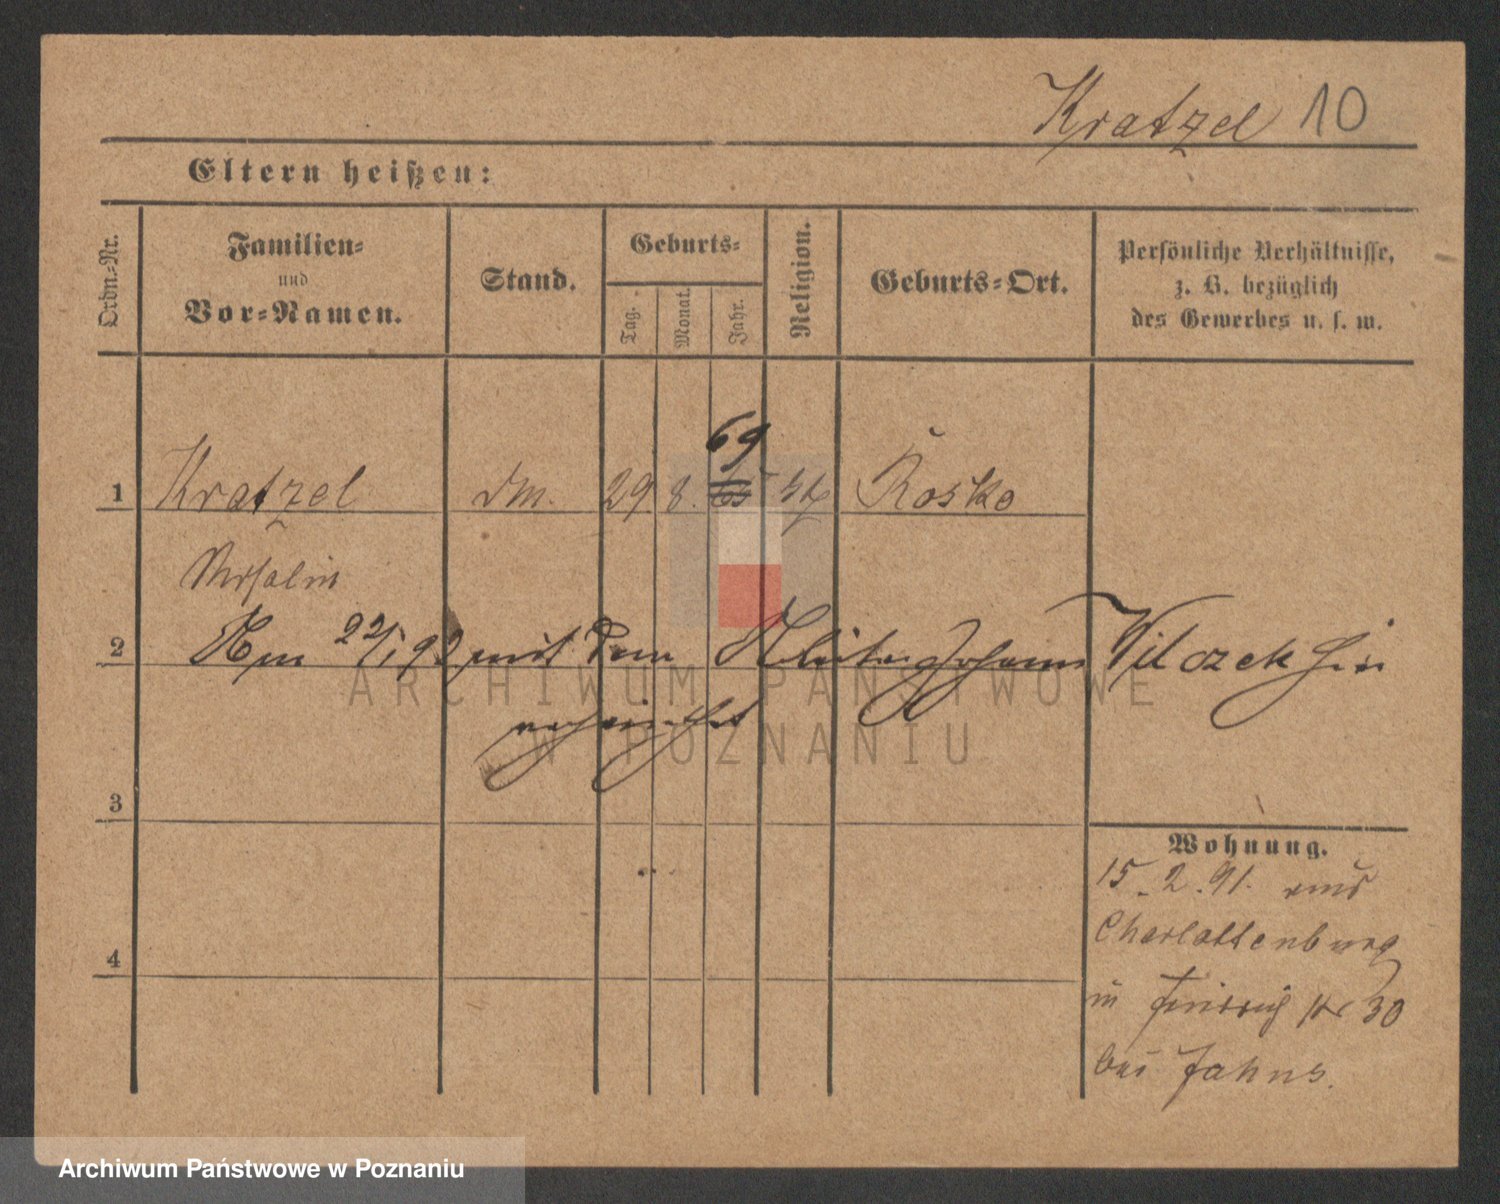 Kratzel 10
Eltern heißen:
Ordn.=Nr.
Familien=
und
Vor=Namen.
Stand.
Geburts=
Tag.
Monat.
Jahr.
Religion.
Geburts=Ort.
Persönliche Verhältnisse,
z. B. bezüglich
des Gewerbes u. s. w.
69
1 Kratzel 29 8. kth Rosko
2
Am 22/1 92 mit dem Arbeiter Johann Wilczek hier
3
Wohnung.
15. 2. 91. aus
Charlottenburg
4
in 30
bei Jahns.
ARCHIWUM PAŃSTWOWE
W POZNANIU
Archiwum Państwowe w Poznaniu